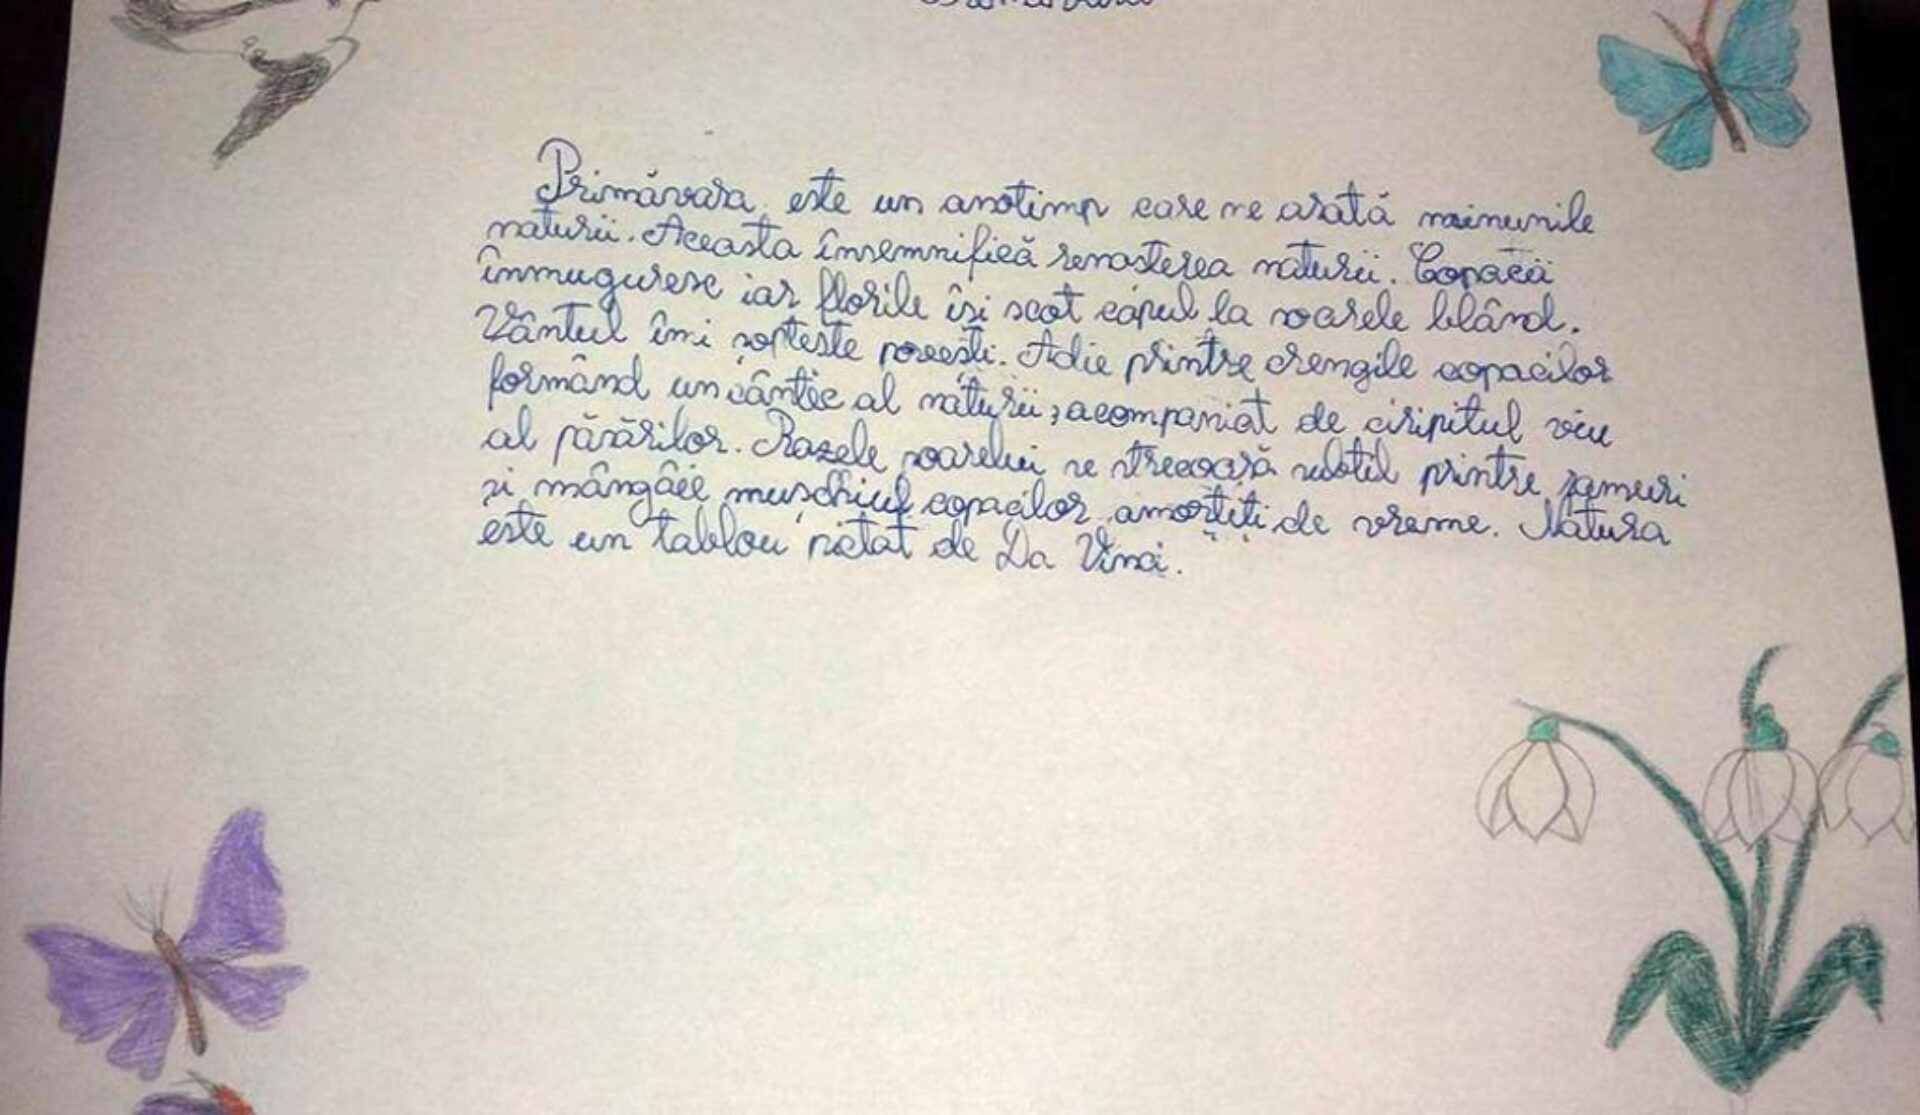 Primăvara este un anotimp care ne arată minunile
naturii. Aceasta însemnifică renasterea naturii. Copacii
înmuguresc iar florile îsi scot capul la soarele blând.
Vântul îmi șopteste povesti. Adie printre crengile copacilor
formând un cântec al naturii, acompaniat de ciripitul viu
al păsărilor. Razele soarelui se strecoară subtil printre ramuri
si mângâie muschiul copacilor amorțiți de vreme. Natura
este un tablou pictat de Da Vinci.